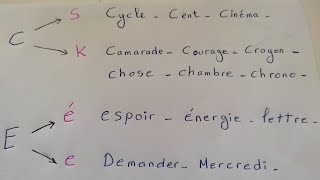 S Cycle - Cent - Cinéma -
C
K Camarade - Courage - Crayon -
chose - chambre - chrono -
é espoir - énergie - lettre -
E
e Demander - Mercredi -